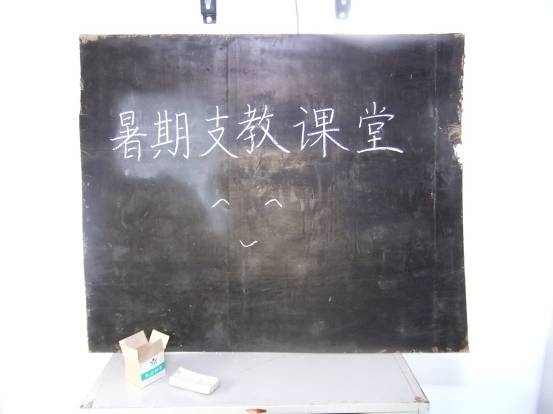 暑期支教课堂